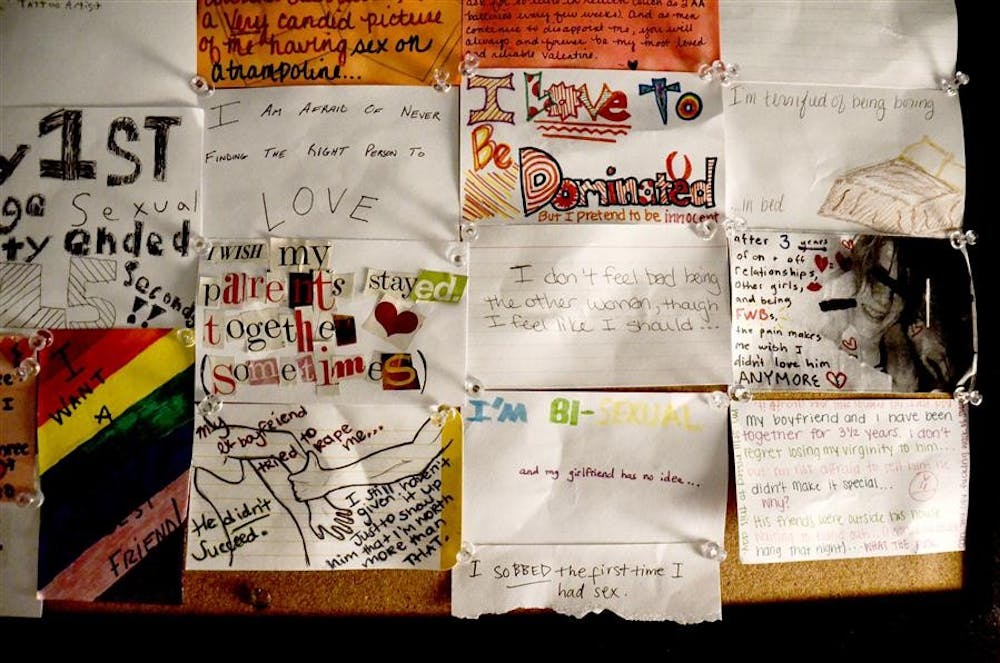 Tattoo Artist
a Very candid picture
of me having sex on
a trampoline...
batteries every few weeks). And as men
continue to disappoint me, you will
always and forever be my most loved
and reliable Valentine.
1ST
Sexual
ended
Seconds
!!
I AM AFRAID OF NEVER
FINDING THE RIGHT PERSON TO
LOVE
I Love To
Be
Dominated
But I pretend to be innocent
I'm terrified of being boring
...in bed
I WISH my
parents stayed.
together
(sometimes)
I don't feel bad being
the other woman, though
I feel like I should...
after 3 years
of on + off
relationships,
other girls,
and being
FWBs,
the pain makes
me wish I
didn't love him
ANYMORE
I
WANT
A
FRIEND
my
ex boyfriend
tried to rape
me...
He didn't
Succeed.
I still haven't
given it up
Just to show
him that I'm worth
more than
THAT.
I'M BI-SEXUAL
and my girlfriend has no idea...
I SOBBED the first time I
had sex.
my boyfriend and I have been
together for 3½ years. I don't
regret losing my virginity to him...
but I'm not afraid to tell him he
didn't make it special...
why?
His friends were outside his house
waiting to hang out
hang that night)...WHAT THE